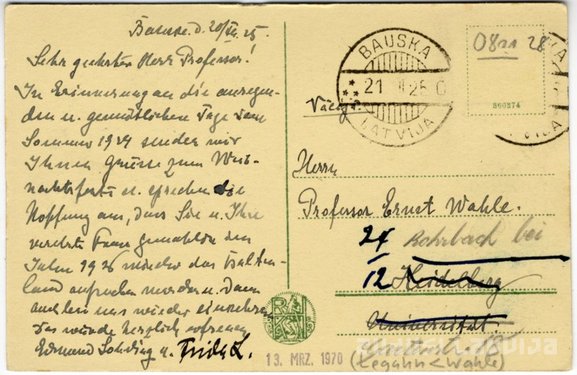 Bauske d. 20/XII. 25.
Sehr geehrter Herr Professor!
In Erinnerung an die anregen-
den u. gemütlichen Tage vom
Sommer 1924 senden wir
Ihnen Grüsse zum Weih-
nachtsfeste u. sprechen die
Hoffnung aus, dass Sie u. Ihre
verehrte Frau Gemahlin im
Jahre 1926 wieder das Balten-
land aufsuchen werden u. dann
auch bei uns wieder einkehren.
Das würde herzlich erfreuen
Edmund u. Frida L.
BAUSKA
21
LATVIJA
0811 28
860274
Herrn
Professor Ernst Wahle.
24 Rohrbach bei
12 Heidelberg
Universität.
13. MRZ. 1970
(Legahn < Wahle)